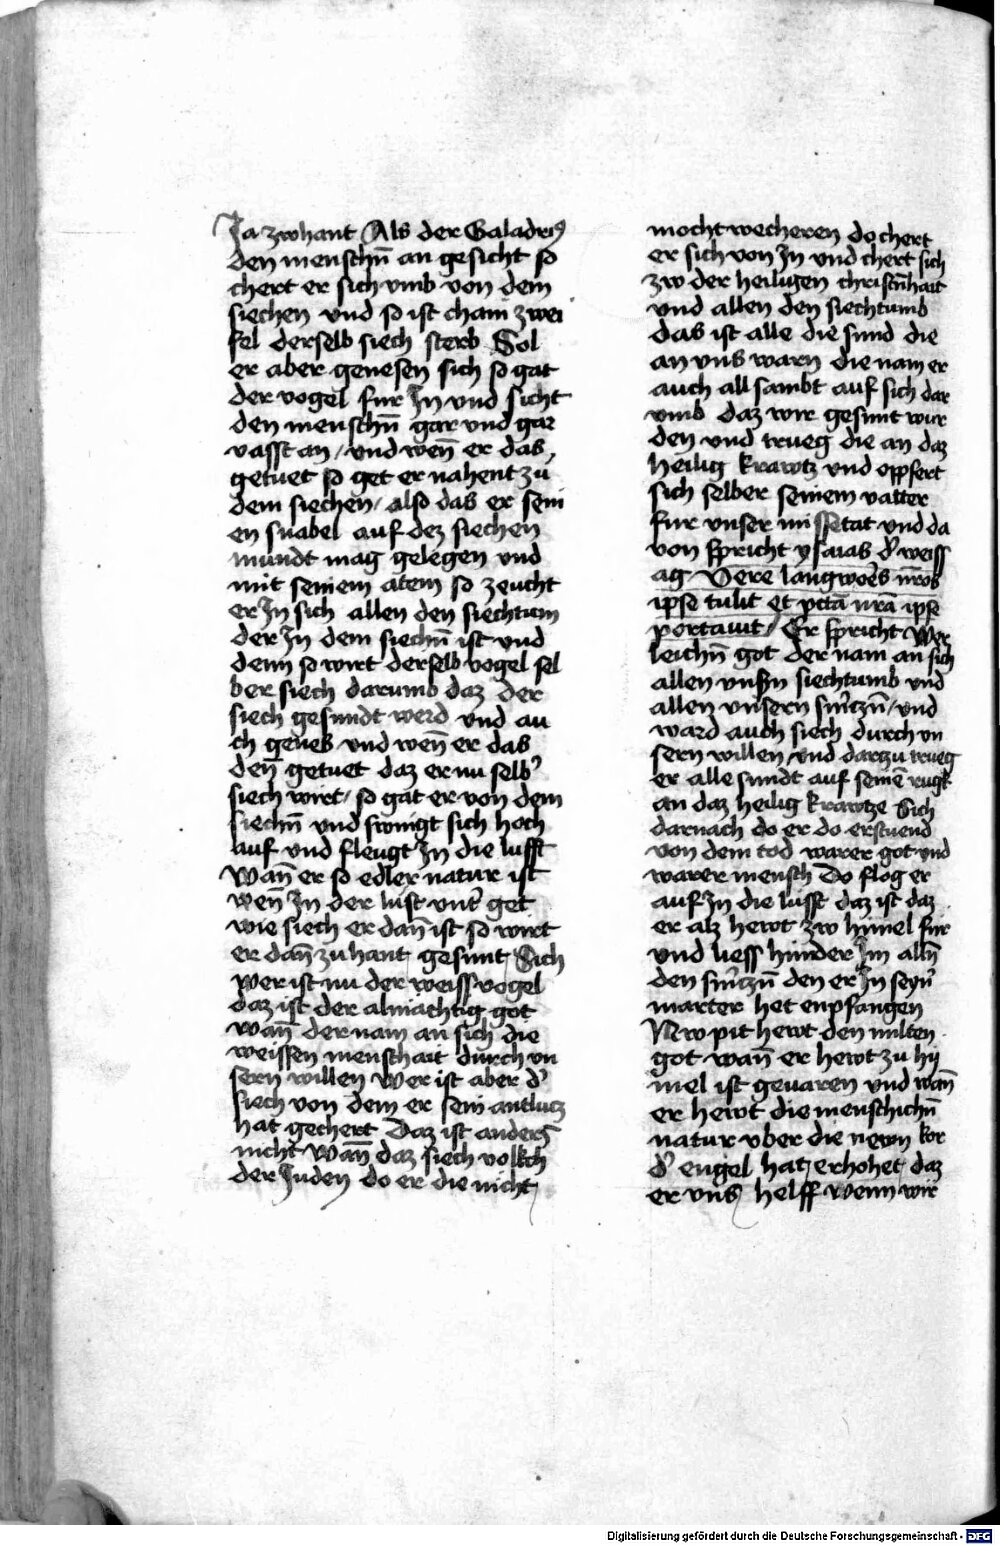 Ja zwhant Als der Galadrius
den menschn̄ an gesicht so
chert er sich vmb von dem
siechen vnd so ist chain zwei
fel derselb siech sterb Sol
er aber genesen sich so gat
der vogel fur In vnd sicht
den menschn̄ gar vnd gar
vasst an / vnd wen̄ er das
getuet so get er nahent zu
dem siechen / also das er sein
en snabel auf dez siechen
mundt mag gelegen vnd
mit seinem atem so zeucht
er In sich allen den siechtum
der In dem siechn̄ ist vnd
denn so wirt derselb vogel sel
ber siech darumb daz der
siech gesundt werd vnd au
ch genes vnd wen̄ er das
den̄ getuet daz er nu selb̓
siech wirt / so gat er von dem
siechn̄ vnd swingt sich hoch
auf vnd fleugt In die lufft
Wan̄ er so edler natur ist
wen̄ In der luft vnt̓ get
wie siech er dan̄ ist so wirt
er dan̄ zu hant gesunt Sich
wer ist nu der weiss vogel
daz ist der almächtig got
wan̄ der nam an sich die
weissen menschait durch vn
sern willen Wer ist aber d̓
siech von dem er sein antlucz
hat gechert Daz ist anders
nicht Wan̄ daz siech volkch
der Juden do er die nicht
mocht wecheren do chert
er sich von In vnd chert sich
zw der heiligen christn̄hait
vnd allen den siechtumb
das ist alle die sund die
an vns warn die nam er
auch all sambt auf sich dar
vmb daz wir gesunt wur
den vnd trueg die an daz
heilig krawtz vnd opfert
sich selber seinem vatter
fur vnser missetat vnd da
von spricht ysaias d̓ weiss
ag Vere langwoēs nr̄os
ipse tulit et pctā nrā ipse
portauit / Er spricht Wer
leichn̄ got der nam an sich
allen vnsn̄ siechtumb vnd
allen vnsern sm̓czn̄ / vnd
ward auch siech durch vn
sern willen / vnd darczu trueg
er alle sundt auf seinē rugk
an daz heilig krawtze Sich
darnach do er do erstuend
von dem tod warer got vnd
warer mensch Do flog er
auf In die lufft daz ist daz
er alz hewt zw himel fur
vnd liess hinder Im alln̄
den sm̓czn̄ den er In seyn̓
marter het enpfangen
Nw pit hewt den milten
got wan̄ er hewt zu hy
mel ist geuaren vnd wan̄
er hewt die menschichn̄
natur vber die newn kor
d̓ engel hat erhohet daz
er vns helff wenn wir
Digitalisierung gefördert durch die Deutsche Forschungsgemeinschaft - DFG